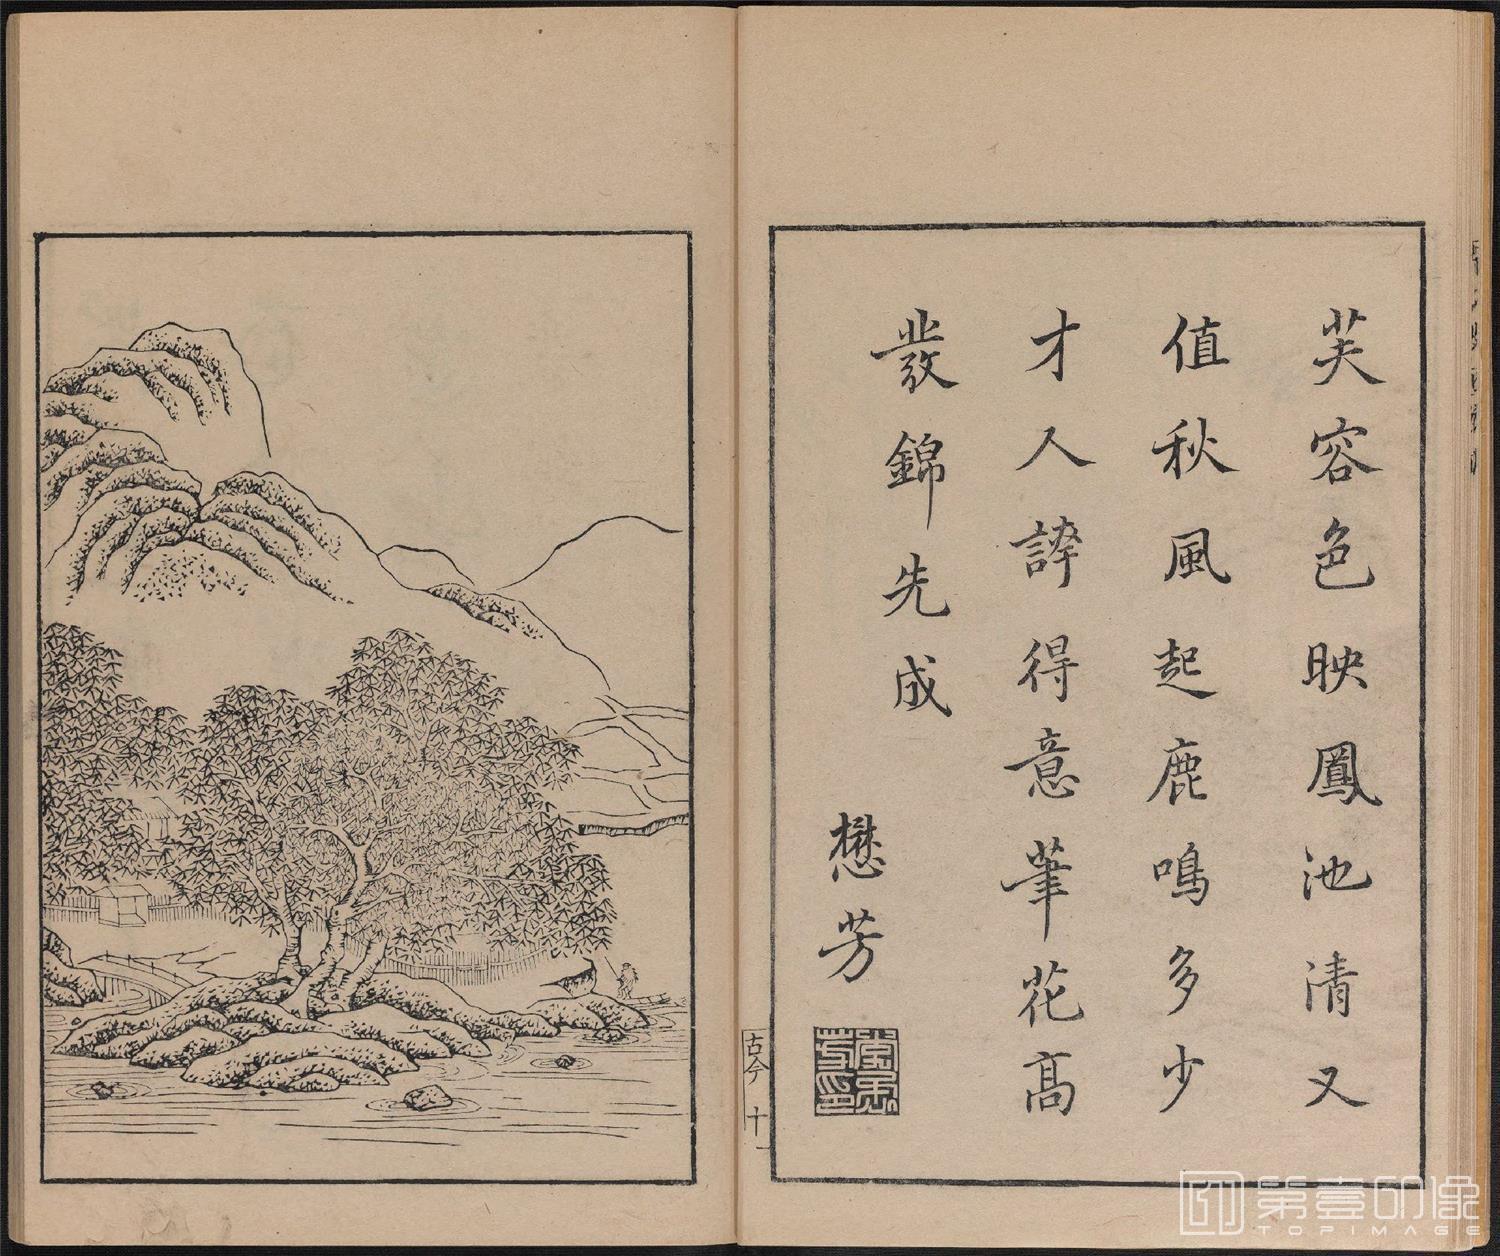 芙容色映鳳池清又
值秋風起鹿鳴多少
才人誇得意筆花高
發錦先成
懋芳
古今 十一
第壹印像
TOPIMAGE